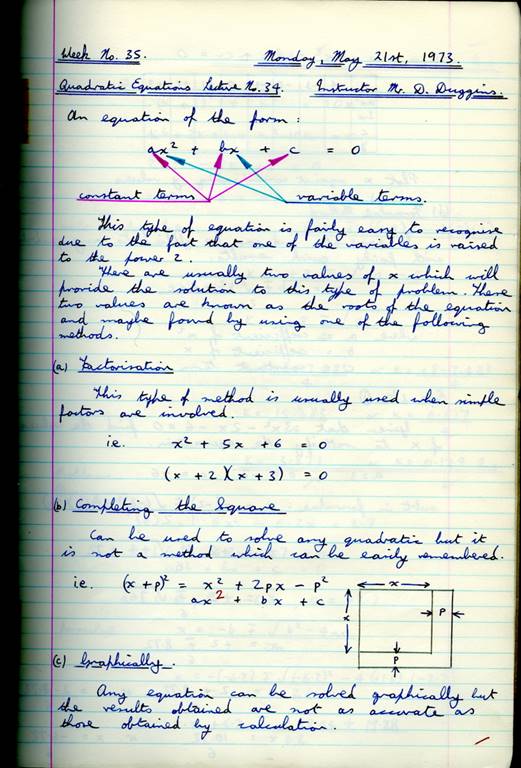 Week No. 35. Monday, May 21st, 1973.
Quadratic Equations Lecture No. 34. Instructor Mr. D. Duggins.
An equation of the form:
ax² + bx + c = 0
constant terms variable terms.
This type of equation is fairly easy to recognise
due to the fact that one of the variables is raised
to the power 2.
There are usually two values of x which will
provide the solution to this type of problem. These
two values are known as the roots of the equation
and maybe found by using one of the following
methods.
(a) Factorisation
This type of method is usually used when simple
factors are involved.
ie. x² + 5x + 6 = 0
(x + 2)(x + 3) = 0
(b) Completing the Square
Can be used to solve any quadratic but it
is not a method which can be easily remembered.
i.e. (x + p)² = x² + 2px - p²
ax² + bx + c
x
x
P
P
(c) Graphically.
Any equation can be solved graphically but
the results obtained are not as accurate as
those obtained by calculation.